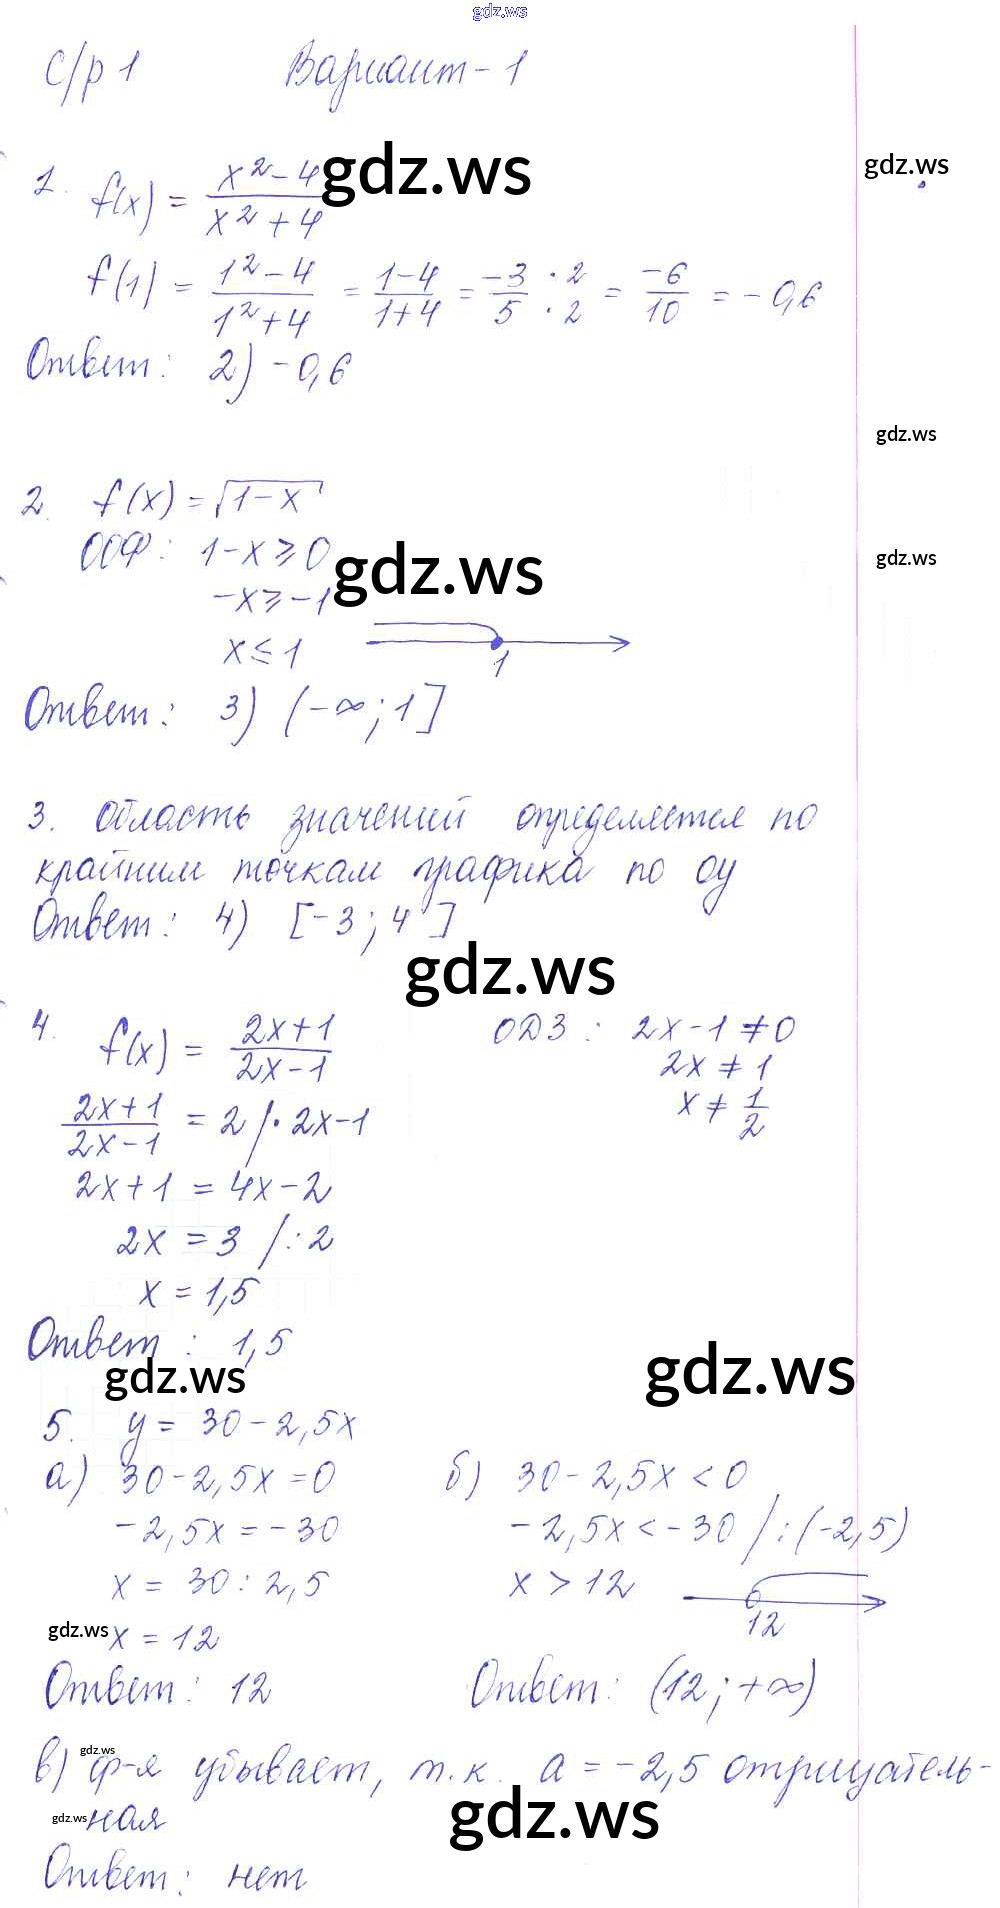 gdz.ws
С/р 1 Вариант - 1
1. f(x) = (x² - 4)/(x² + 4) gdz.ws gdz.ws
f(1) = (1² - 4)/(1² + 4) = (1 - 4)/(1 + 4) = (-3 · 2)/(5 · 2) = -6/10 = -0,6
Ответ: 2) -0,6
gdz.ws
2. f(x) = √(1 - x)
ООФ: 1 - x ≥ 0 gdz.ws gdz.ws
-x ≥ -1
x ≤ 1 1
Ответ: 3) (-∞; 1]
3. Область значений определяется по
крайним точкам графика по оу
Ответ: 4) [-3; 4]
gdz.ws
4. f(x) = (2x + 1)/(2x - 1) ОДЗ: 2x - 1 ≠ 0
2x ≠ 1
(2x + 1)/(2x - 1) = 2 /· 2x - 1 x ≠ 1/2
2x + 1 = 4x - 2
2x = 3 /: 2
x = 1,5
Ответ: 1,5
gdz.ws gdz.ws
5. y = 30 - 2,5x
а) 30 - 2,5x = 0 б) 30 - 2,5x < 0
-2,5x = -30 -2,5x < -30 /: (-2,5)
x = 30 : 2,5 x > 12 12
gdz.ws x = 12
Ответ: 12 Ответ: (12; +∞)
gdz.ws
в) ф-я убывает, т.к. a = -2,5 отрицатель-
gdz.ws ная gdz.ws
Ответ: нет